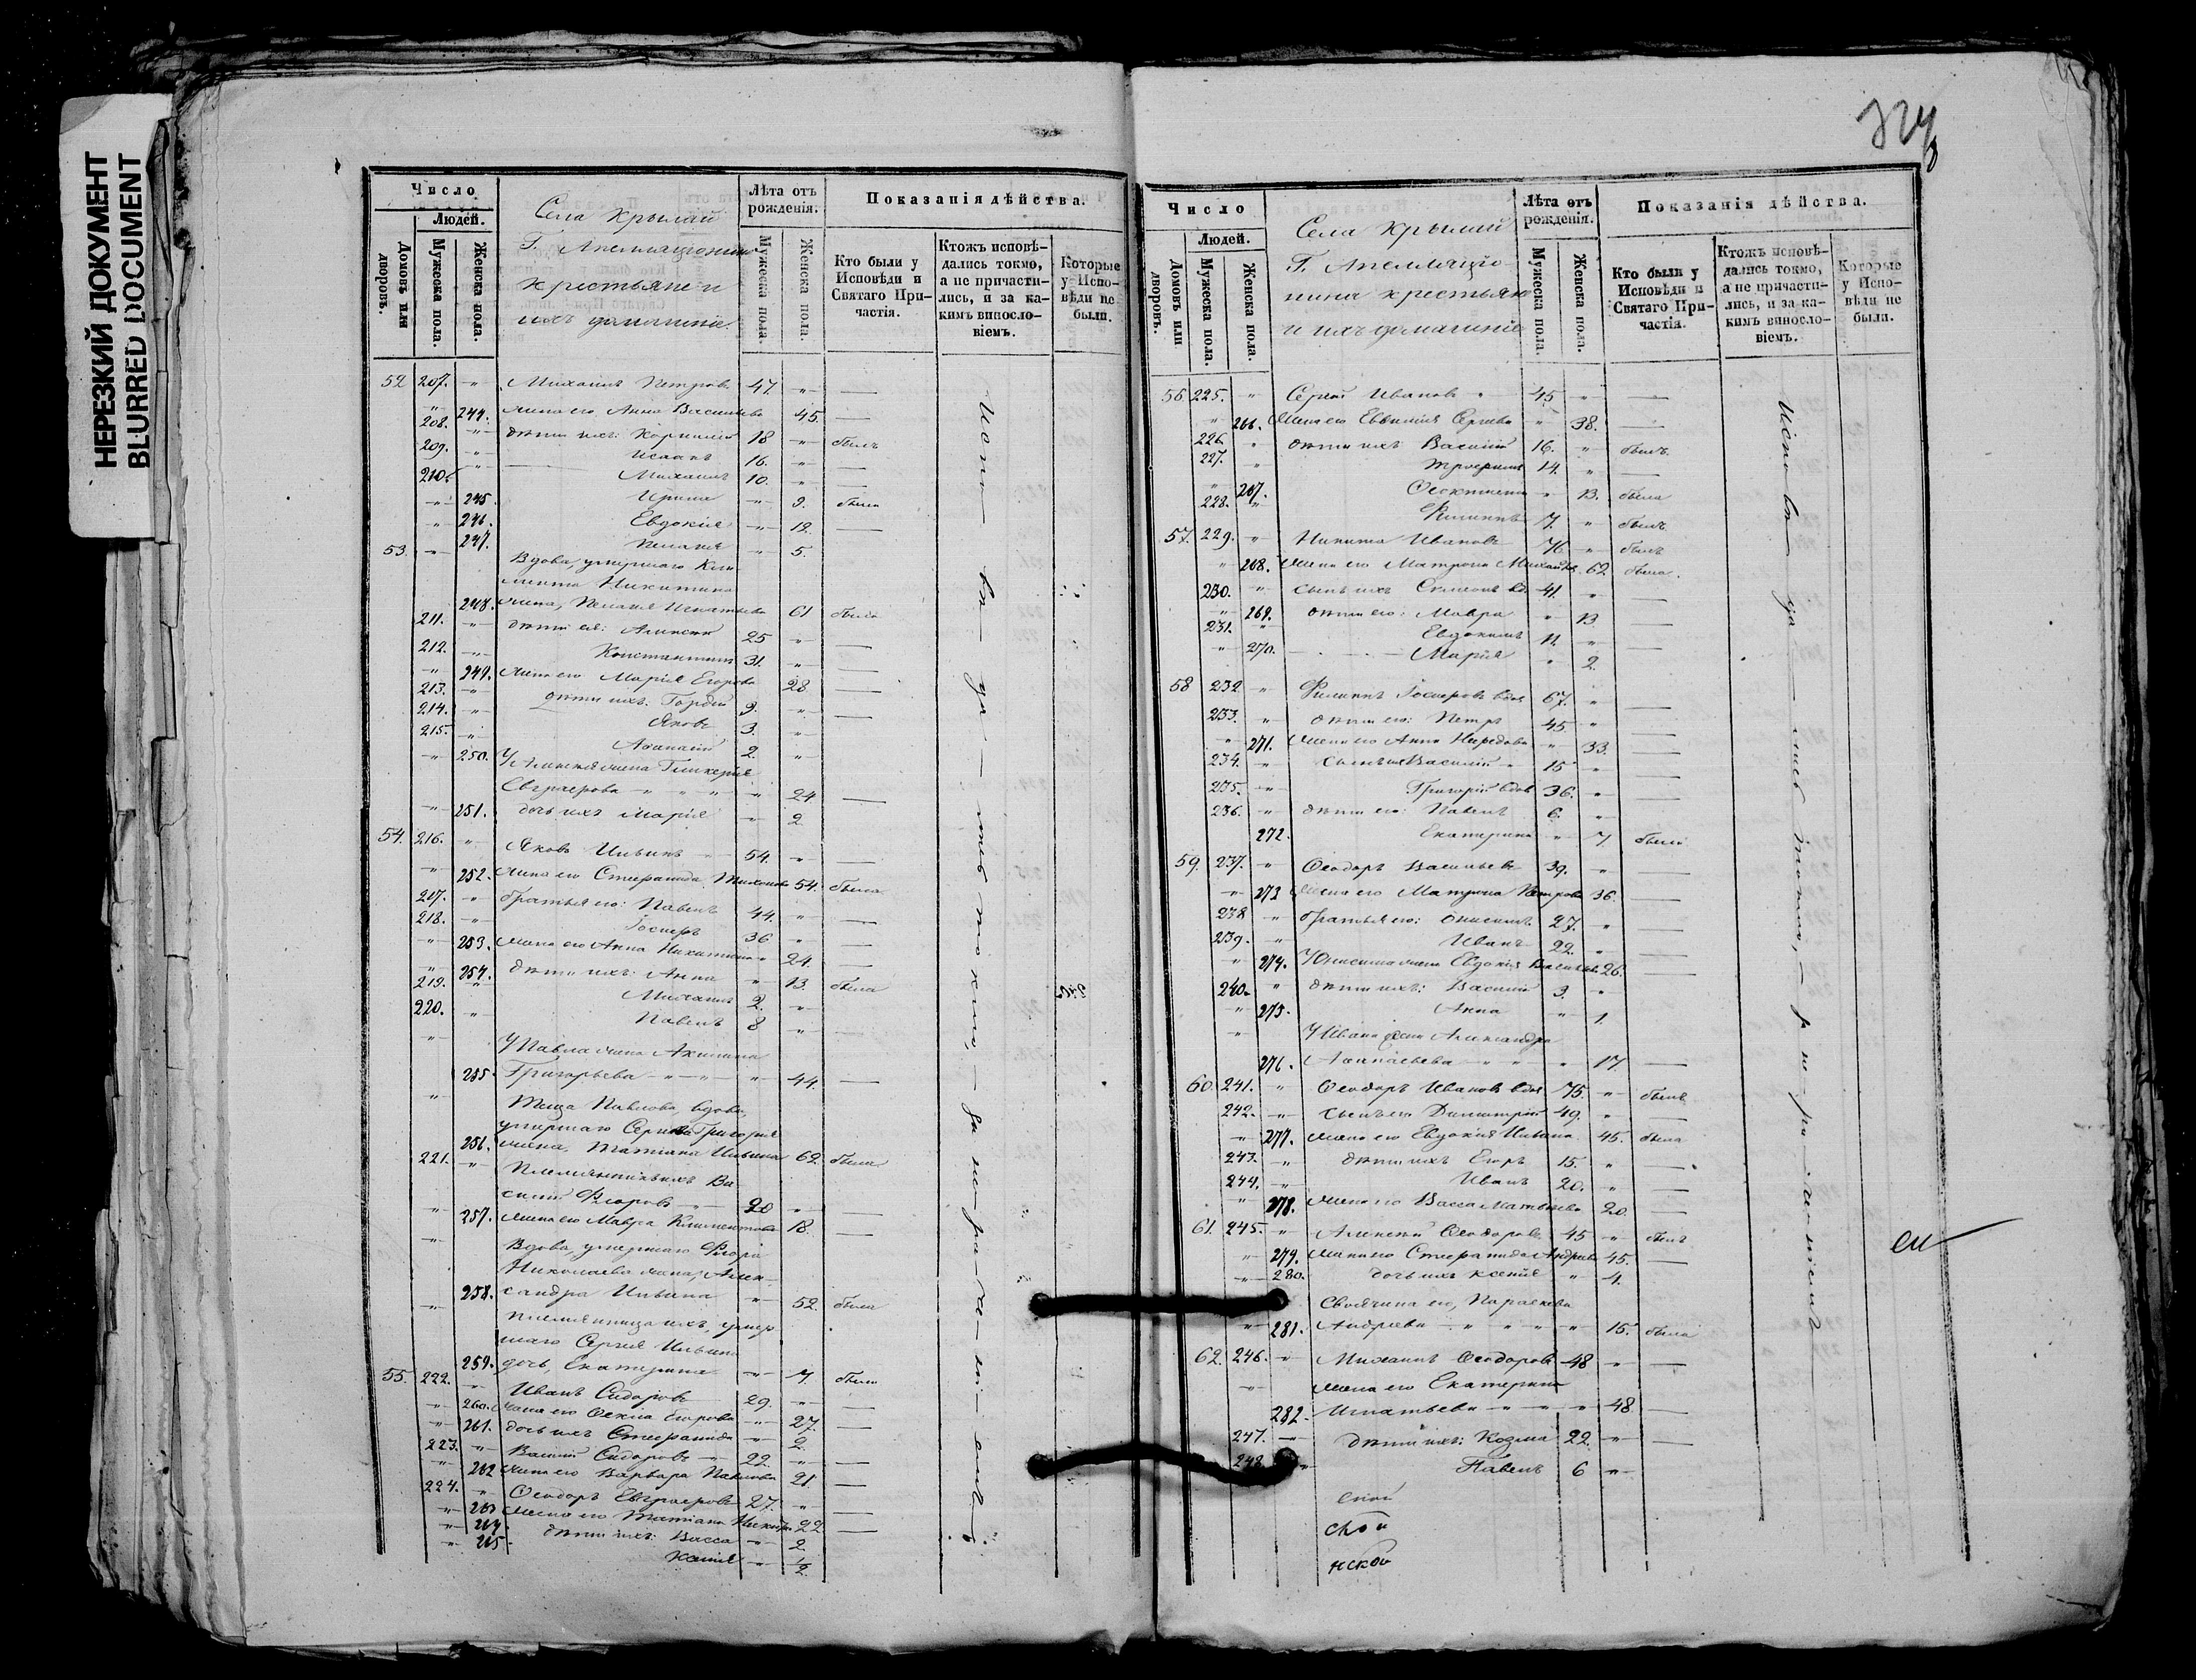 НЕРЕЗКИЙ ДОКУМЕНТ
BLURRED DOCUMENT
Число
Людей.
Домовъ или дворовъ.
Мужеска пола.
Женска пола.
Села Крылай
Г. Апелляціонина
крестьяне и
ихъ домашніе.
Лѣта отъ рожденія.
Мужеска пола.
Женска пола.
Показанія дѣйства.
Кто были у Исповѣди и Святаго Причастія.
Ктожъ исповѣдались токмо, а не причастились, и за какимъ винословіемъ.
Которые у Исповѣди не были.
52 207. " Михаилъ Петровъ 47. "
" 244. жена его Анна Васильева 45.
208. " дѣти ихъ: Корнилій 18 " былъ
209. " Исаакъ 16. "
210. " Михаилъ 10. "
" 245. Ирина " 9. была
" 246. Евдокія " 12.
" 247. Пелагія " 5.
53. " Вдова, умершаго Кли
мента Никитина
248. жена, Пелагія Игнатьева 61 была
211. " дѣти ея: Алексѣй 25 "
212. " Константинъ 31. "
" 249. жена его Марія Егорова 28
213. " дѣти ихъ: Гордій 9. "
214. " Яковъ 3. "
215. " Аѳанасій 2. "
" 250. У Алексѣя жена Гликерія
Евграфова " " " 24
" 251. дочь ихъ Марія " 2
54. 216. " Яковъ Ильинъ 54. "
" 252. жена его Стефанида Тихонова 54. была
217. " братья его: Павелъ 44. "
218. " Іосифъ 36 "
" 253. жена его Анна Никитина " 24.
" 254. дѣти ихъ: Анна " 13. была
219. " Михаилъ 2. "
220. " Павелъ 8 "
" У Павла жена Акилина
255. Григорьева " " 44.
" Теща Павлова, вдова,
умершаго Сергія Григорія
256. жена, Татіана Ильина 62. была
221. " Племянникъ ихъ Ва
силій Флоровъ 20 "
" 257. жена его Мавра Климентова 18.
" Вдова, умершаго Флора
Николаева жена, Алек-
258. сандра Ильина " 52. была
" племянница ихъ, умер
шаго Сергія Ильина
259. дочь Екатерина " 7. была
55. 222. " Иванъ Сидоровъ 29. "
" 260. жена его Ѳекла Егорова " 27.
" 261. дочь ихъ Стефанида " 2.
223. " Василій Сидоровъ 22. "
" 262 жена его Варвара Павлова 21.
224. " Ѳеодоръ Евграфовъ 27. "
" 263 жена его Татіана Никифо 22
" 264. дѣти ихъ: Васса " 2.
" 265 Ксенія " ½
Испо-вѣ-да-лись токмо, - за не-ра-че-ні-емъ
240.
Число
Людей.
Домовъ или дворовъ.
Мужеска пола.
Женска пола.
Села Крылий
Г. Апелляціо-
нина крестьяне
и ихъ домашніе
Лѣта отъ рожденія.
Мужеска пола.
Женска пола.
Показанія дѣйства.
Кто были у Исповѣди и Святаго Причастія.
Ктожъ исповѣдались токмо, а не причастились, и за какимъ винословіемъ.
Которые у Исповѣди не были.
56 225. " Сергѣй Ивановъ " 45 "
" 266. Жена его Евѳимія Сергѣева " 38.
226. " дѣти ихъ Василій 16. " былъ
227. " Трофимъ 14. "
" 267. Ѳеоктиста " 13. была
228. " Филиппъ 7. " былъ
57. 229. " Никита Ивановъ 76 " былъ
" 268. жена его Матрона Михайл. 62. была.
230. " сынъ ихъ Симеонъ вд. 41. "
" 269. дѣти его: Мавра " 13
231. " Евдокимъ 11. "
" 270. Марія " 2.
58 232 " Филиппъ Іосифовъ вдов 67. "
233. " дѣти его: Петръ 45 "
" 271. жена его Анна Нефедова " 33.
234. " сынъ ихъ Василій " 15 "
235. " Григорій вдов 36. "
236. " дѣти его: Павелъ 6. "
272. Екатерина " 7 была
59. 237. " Ѳеодоръ Васильевъ 39. "
" 273 жена его Матрона Петрова 36.
238 " братья его: Онисимъ 27. "
239. " Иванъ 22. "
" 274. У Онисима жена Евдокія Васильев. 26.
240. " дѣти ихъ: Василій 3. "
" 275. Анна " 1.
" У Ивана жена Александра
276. Аѳанасьева " " " 17
60. 241. " Ѳеодоръ Ивановъ вдов 75. " былъ
242. " сынъ его Димитрій 49. "
" 277. жена его Евдокія Ильина 45. была
243. " дѣти ихъ Егоръ 15. "
244. " Иванъ 20. "
" 278. жена его Васса Матвѣева 20.
61. 245. " Алексѣй Ѳеодоровъ 45 " былъ
" 279. жена его Стефанида Андреева 45.
" 280. дочь ихъ Ксенія " 4.
Своячина его, Параскева
" 281. Андреева " " " " 15. была
62. 246. " Михаилъ Ѳеодоровъ 48 "
" жена его Екатерина
282. Игнатьева " " " 48
247. " дѣти ихъ: Козма 22. "
248. " Павелъ 6 "
ской
ской
нской
Испо-вѣ-да-лись токмо, - за не-ра-че-ніемъ